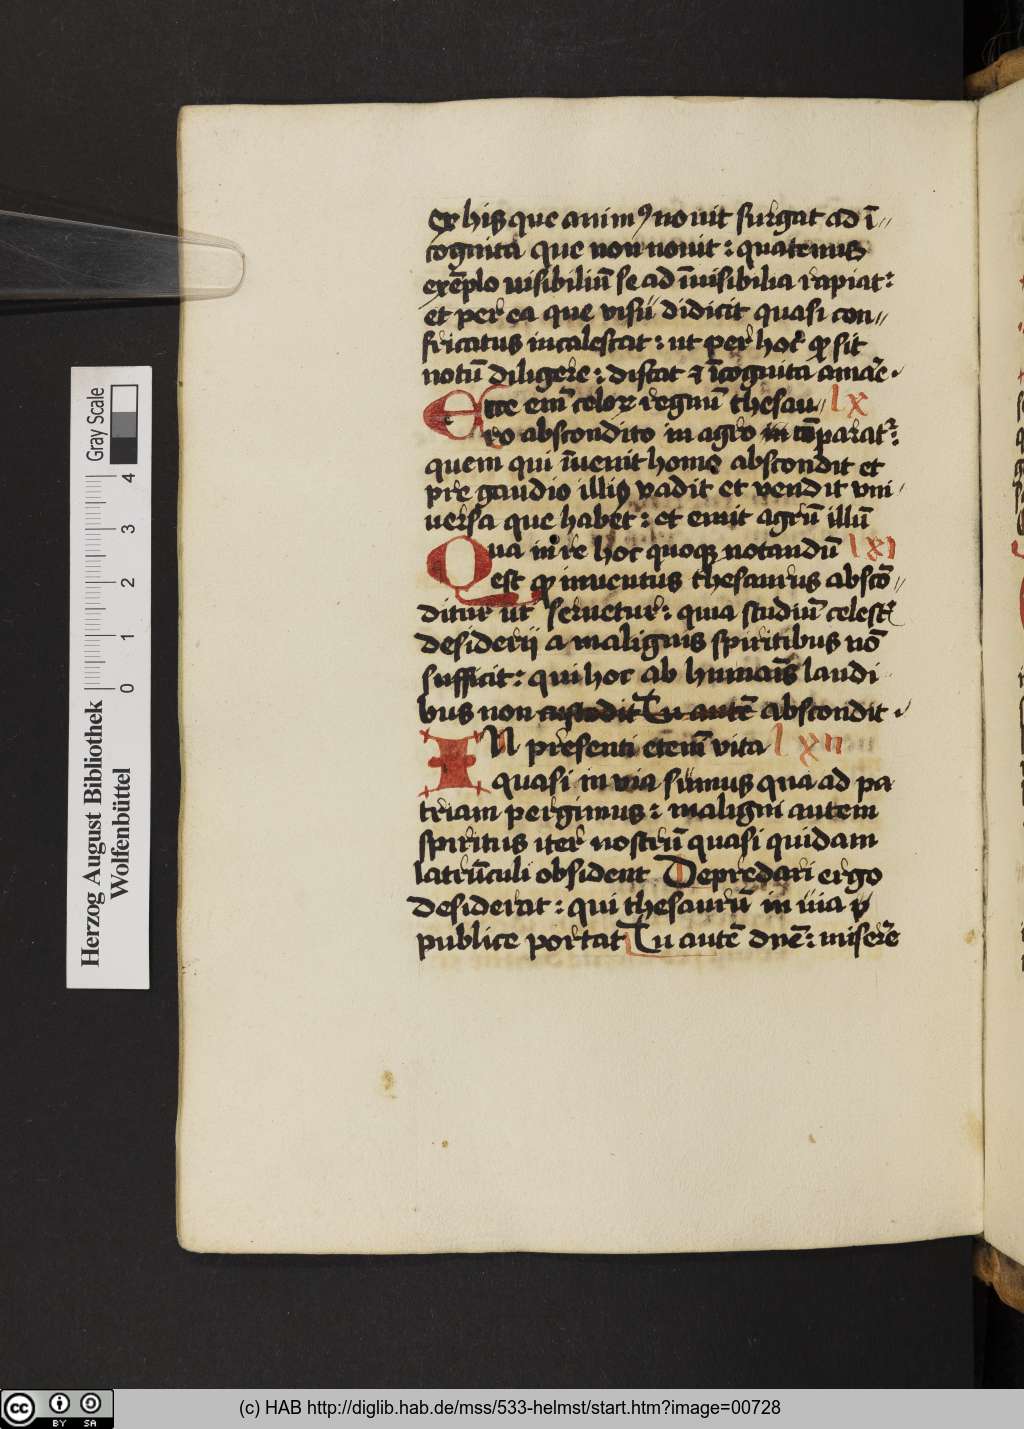 ex hijs que anim9 nouit surgat ad ī〃
cognita que non nouit : quatenus
exēplo uisibiliū se ad īuisibilia rapiat :
et per ea que visu didicit quasi con〃
fricatus incalescat : ut per hoc qđ sit
notū diligere : discat & īcognita amare .
Ecce em̄ celoꝝ regnū thesau〃 lx
ro abscondito in agro in cōparatr :
quem qui īuenit homo abscondit et
pre gaudio illis vadit et vendit vni
uersa que habet : et emit agrū illū
Qua in re hoc quoqꝫ notandū lxi
est qđ inuentus thesaurus abscō〃
ditur ut seruetur : quia studiū celest
desiderij a malignis spiritibus nō
sufficit : qui hoc ab humanis laudi
bus non custodit Tu autē abscondit .
IN presenti etenī vita lxii
quasi in via sumus qua ad pa
triam pergimus : maligni autem
spiritus iter nostrū quasi quidam
latrūculi obsident Depredari ergo
desiderat : qui thesaurū in uia
publice portat Tu autē dn̄e : miserē
Herzog August Bibliothek
Wolfenbüttel
Gray Scale
0 1 2 3 4
cc BY SA
(c) HAB http://diglib.hab.de/mss/533-helmst/start.htm?image=00728